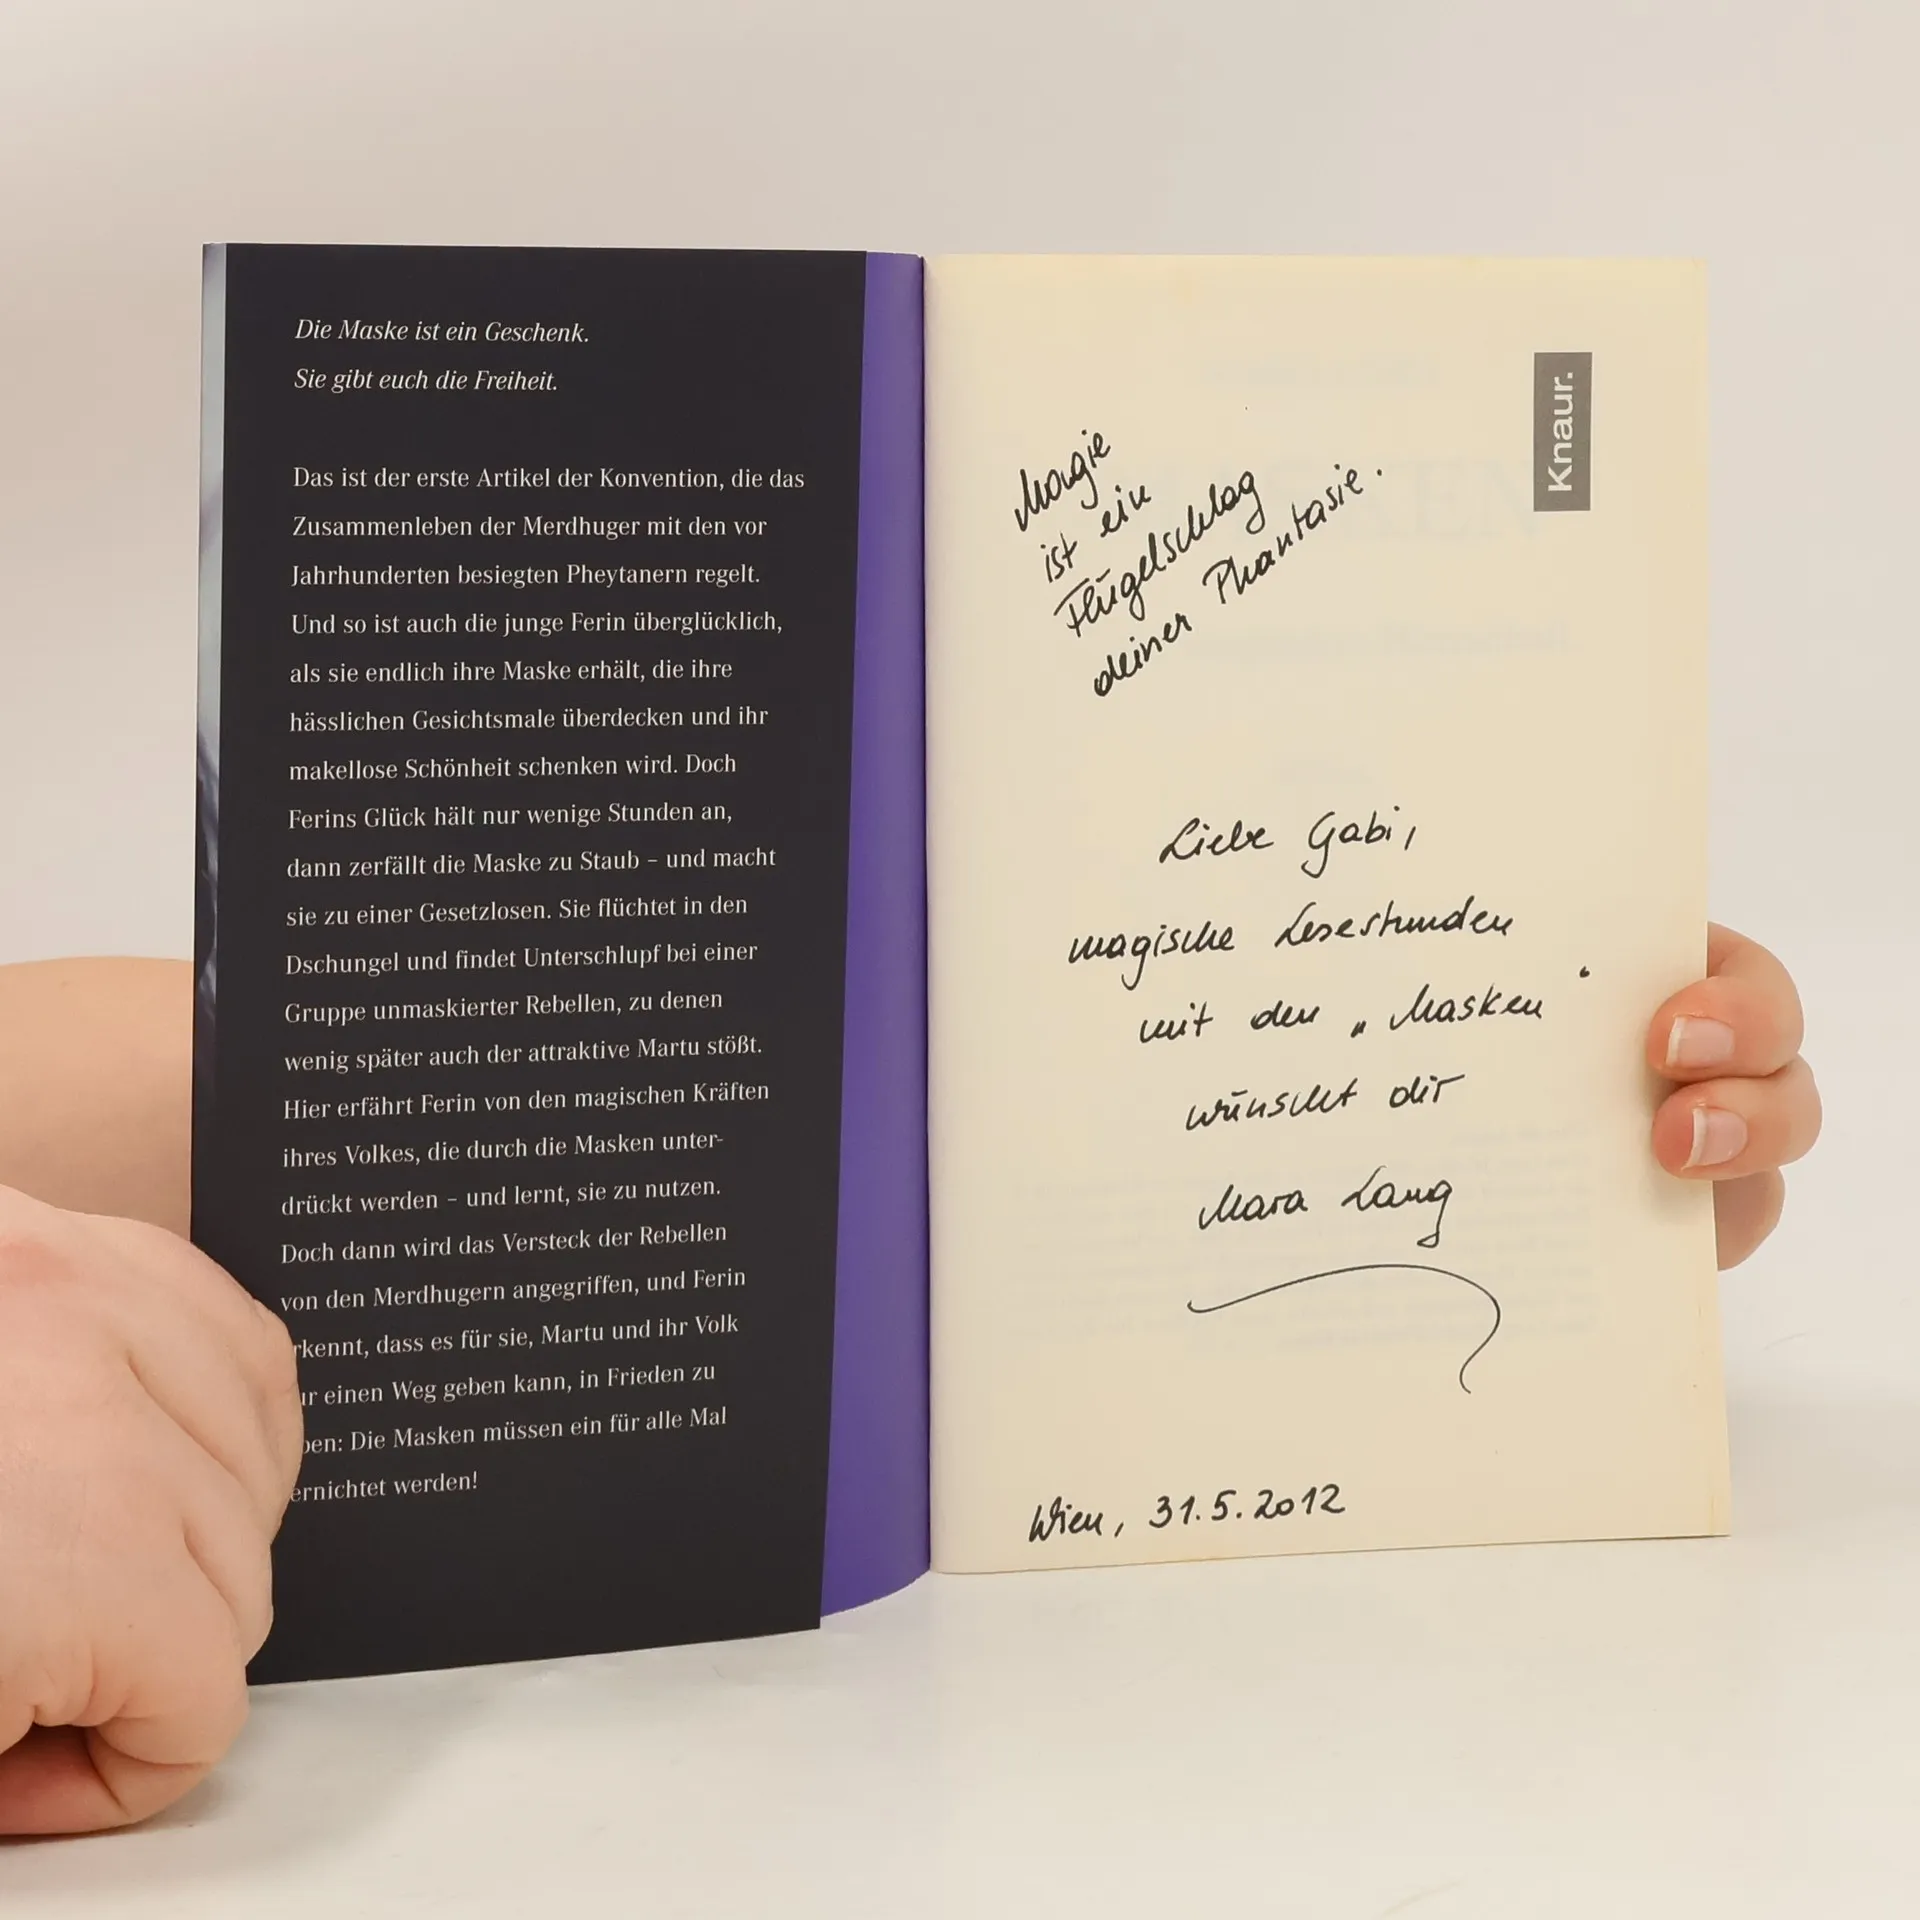 Die Maske ist ein Geschenk.
Sie gibt euch die Freiheit.
Das ist der erste Artikel der Konvention, die das
Zusammenleben der Merdhuger mit den vor
Jahrhunderten besiegten Pheytanern regelt.
Und so ist auch die junge Ferin überglücklich,
als sie endlich ihre Maske erhält, die ihre
hässlichen Gesichtsmale überdecken und ihr
makellose Schönheit schenken wird. Doch
Ferins Glück hält nur wenige Stunden an,
dann zerfällt die Maske zu Staub – und macht
sie zu einer Gesetzlosen. Sie flüchtet in den
Dschungel und findet Unterschlupf bei einer
Gruppe unmaskierter Rebellen, zu denen
wenig später auch der attraktive Martu stößt.
Hier erfährt Ferin von den magischen Kräften
ihres Volkes, die durch die Masken unter-
drückt werden – und lernt, sie zu nutzen.
Doch dann wird das Versteck der Rebellen
von den Merdhugern angegriffen, und Ferin
rkennt, dass es für sie, Martu und ihr Volk
ur einen Weg geben kann, in Frieden zu
ben: Die Masken müssen ein für alle Mal
ernichtet werden!
Knaur.
Magie
ist ein
Flügelschlag
deiner Phantasie.
Liebe Gabi,
magische Lesestunden
mit den „Masken"
wünscht dir
Mara Lang
Wien, 31.5.2012